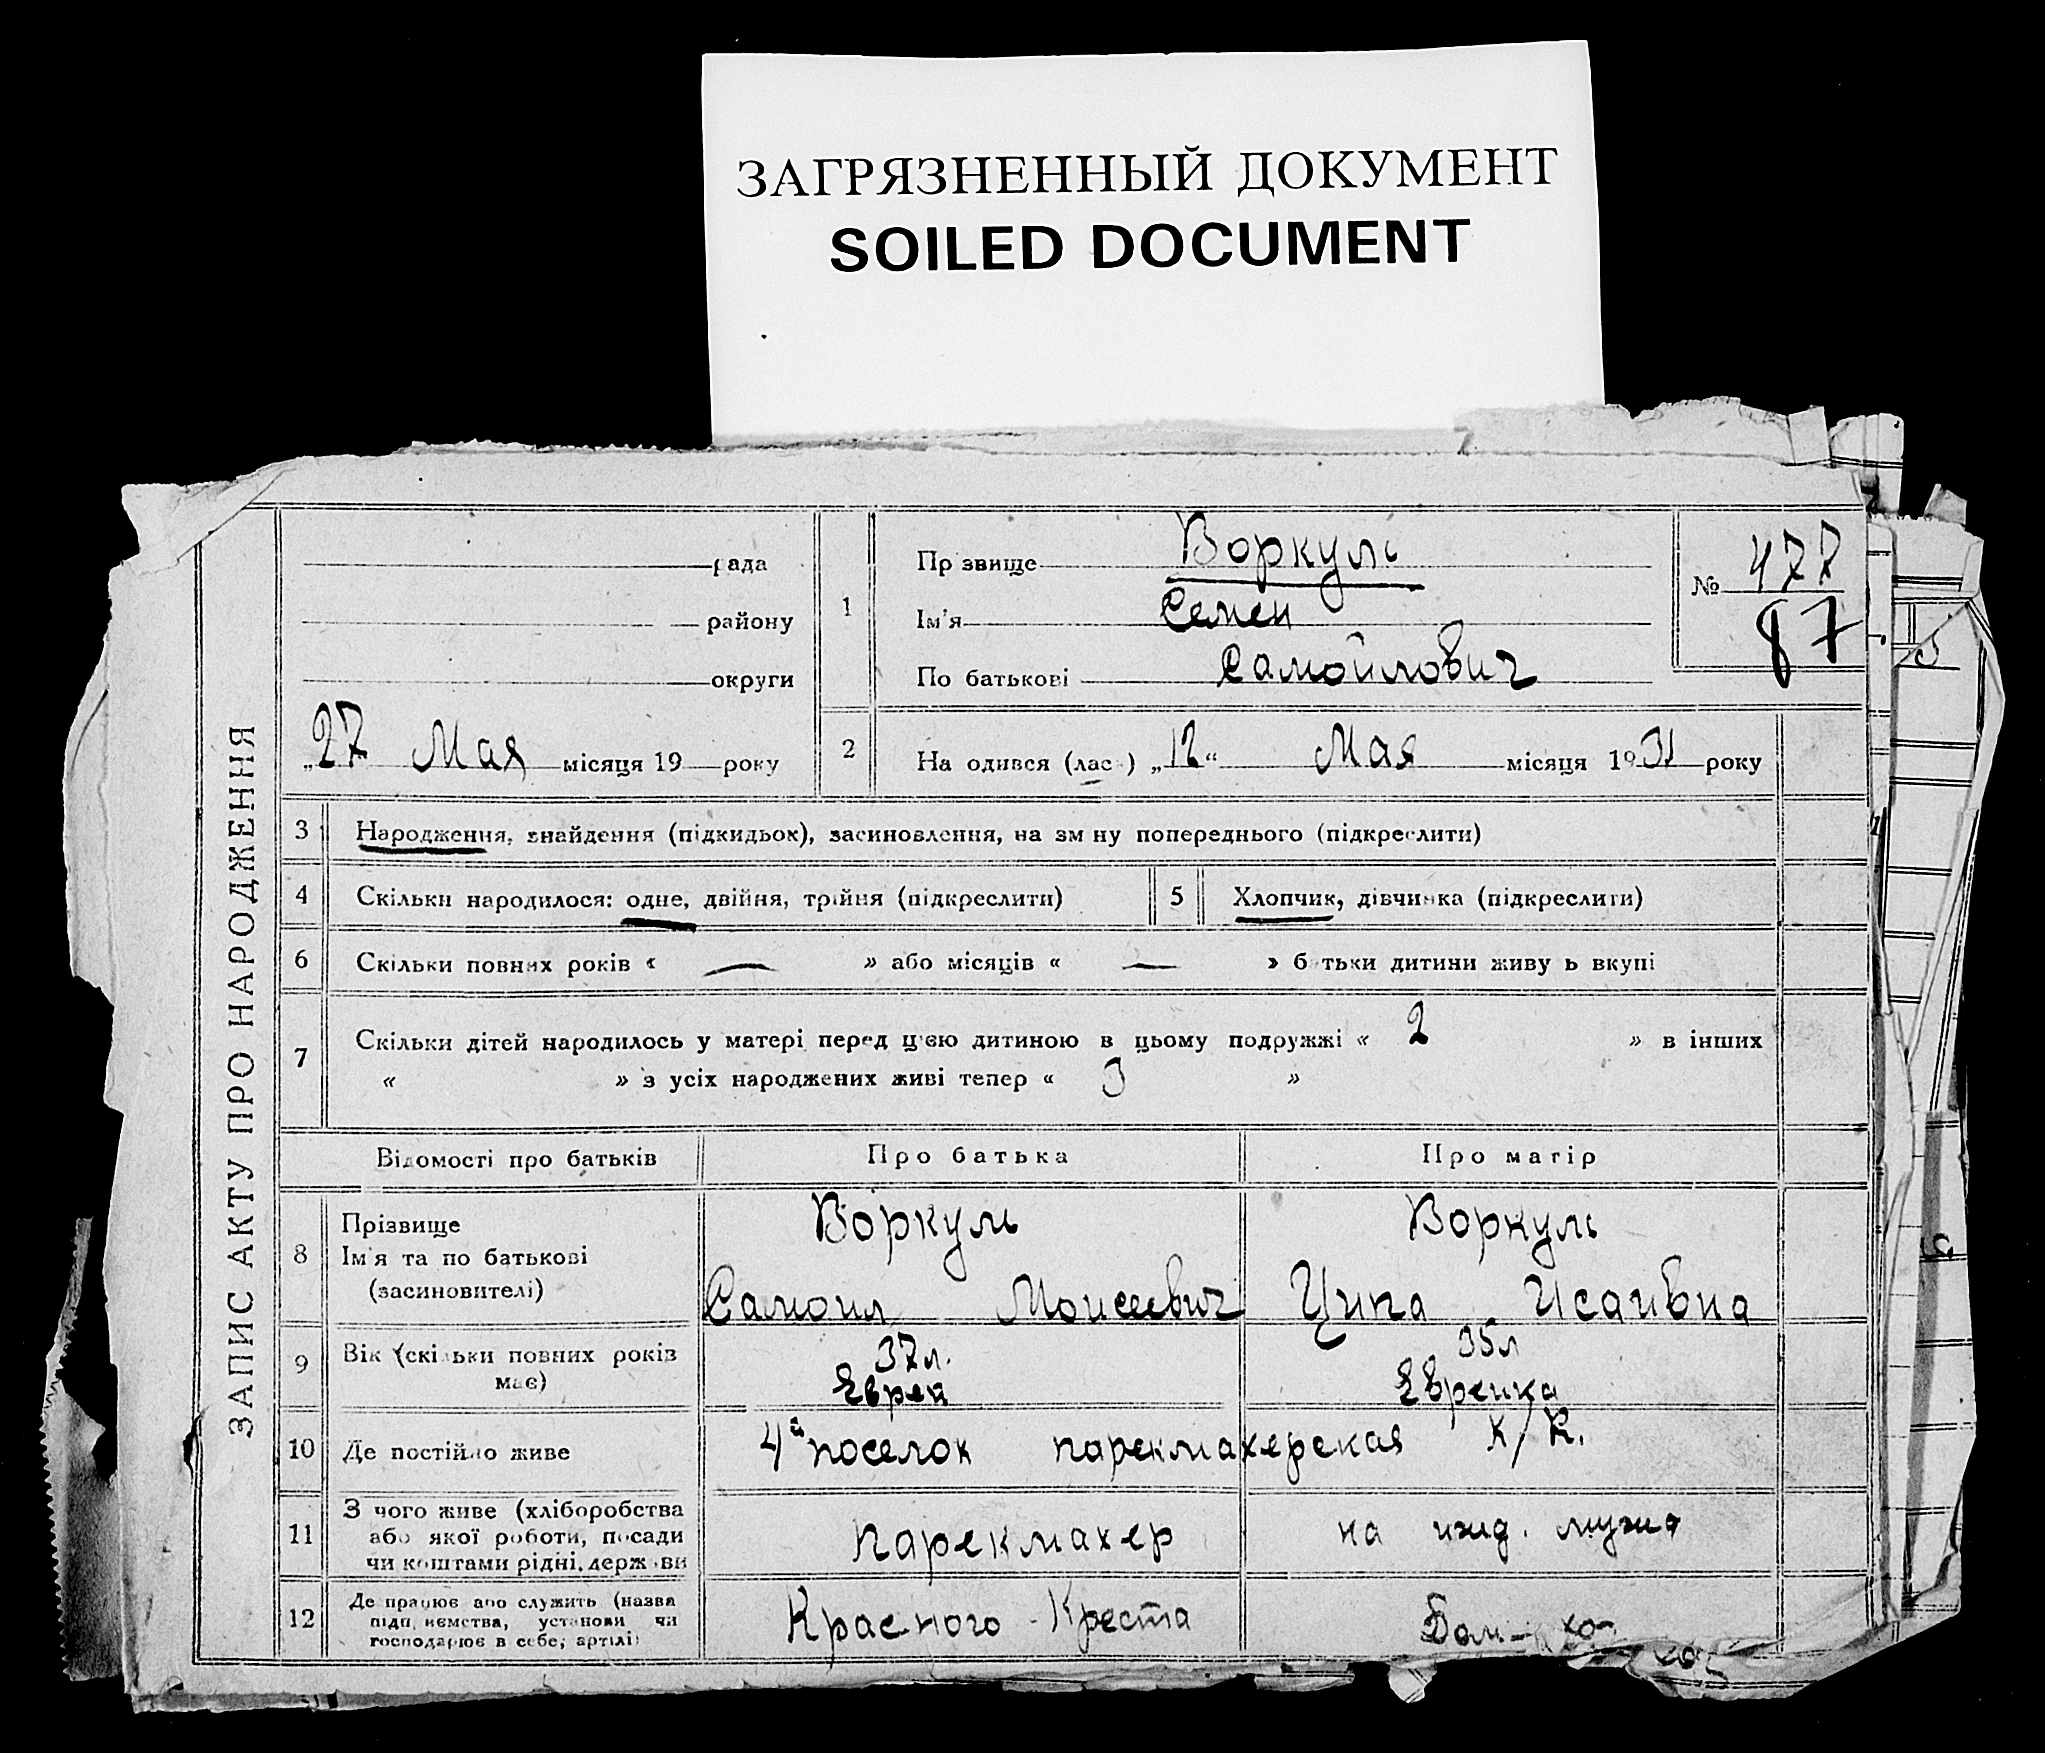 ЗАГРЯЗНЕННЫЙ ДОКУМЕНТ
SOILED DOCUMENT
ЗАПИС АКТУ ПРО НАРОДЖЕННЯ
рада
району
округи
„27 Мая місяця 19 року
1
Пр звище Воркуль
Ім'я Семен
По батькові Самойлович
№ 477
87
2
На одився (лас ) „12“ Мая місяця 1931 року
3 Народження, знайдення (підкидьок), засиновлення, на зм ну попереднього (підкреслити)
4 Скільки народилося: одне, двійня, трійня (підкреслити)
5 Хлопчик, дівчинка (підкреслити)
6 Скільки повних років « — » або місяців « — » б тьки дитини живу ь вкупі
7 Скільки дітей народилось у матері перед ц'єю дитиною в цьому подружжі « 2 » в інших
« » з усіх народжених живі тепер « 3 »
Відомості про батьків Про батька Про матір
8 Прізвище
Ім'я та по батькові
(засиновителі)
Воркуль
Самоил Моисеевич
Воркуль
Ципа Исаивна
9 Вік (скільки повних років
має)
37 л.
Еврей
35 л
Еврейка
10 Де постійно живе
4й поселок парекмахерская К/К.
11 З чого живе (хліборобства
або якої роботи, посади
чи коштами рідні, держ ви
парекмахер
на ижд. мужа
12 Де працює або служить (назва
підп иємства, установи чи
господарює в себе, артілі)
Красного Креста
Дом-хо-